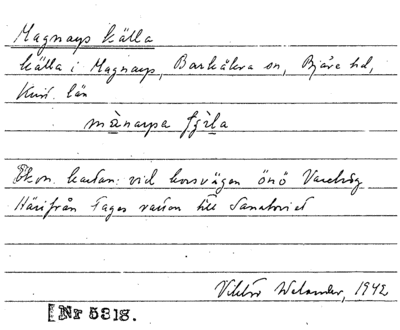 Magnarps källa
källa i Magnarp, Barkåkra sn, Bjäre hd,
Krist. län
mànarpa çìla
Ekon. kartan: vid korsvägen önö Vardhög
Härifrån tages vatten till Sanatoriet
Viktor Welander, 1942
[Nr 5318.